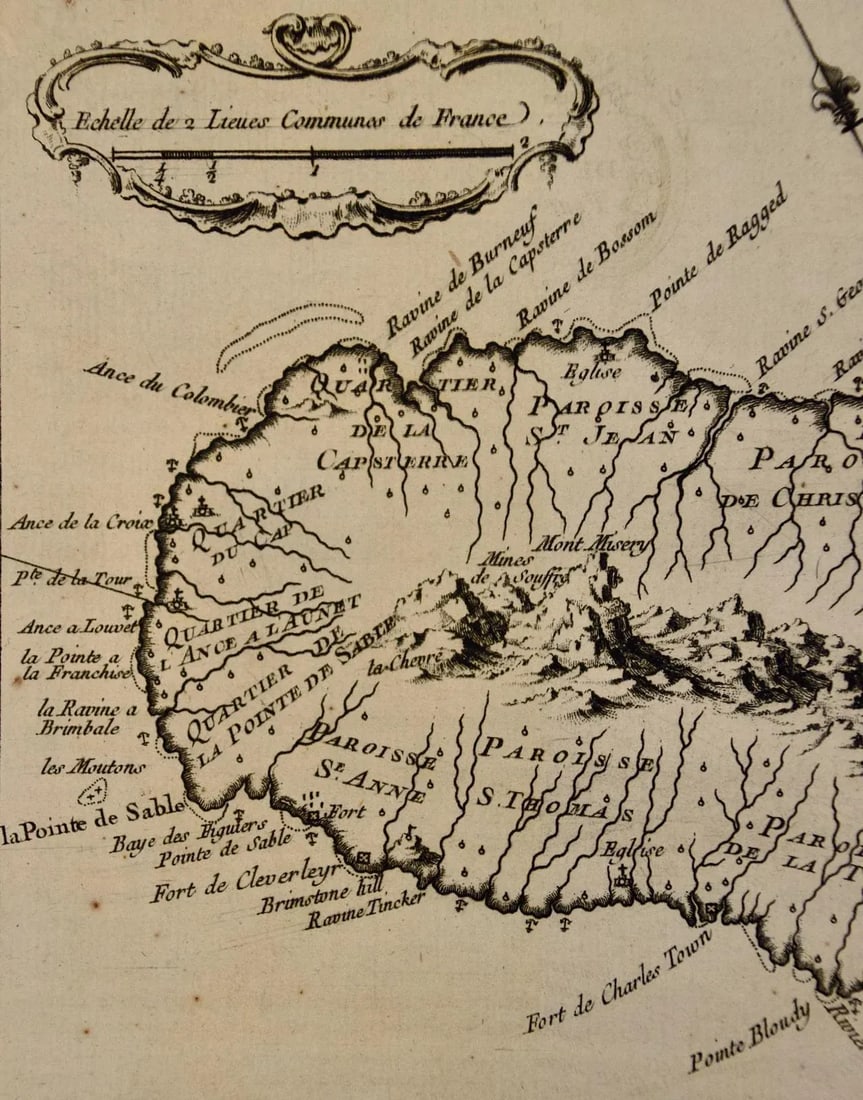 Echelle de 2 Lieues Communes de France
1/4 1/2 1 2
Ravine de Burneuf
Ravine de la Capsterre
Ravine de Bossom
Pointe de Ragged
Ravine S. Geo
Rav
Ance du Colombier
QUARTIER
DE LA
CAPSTERRE
Eglise
PAROISSE
ST. JEAN
PARO
DE CHRIS
Ance de la Croix
QUARTIER
DU CAP
Mont Misery
Mines
de Souffre
Pte. de la Tour
Ance a Louvet
QUARTIER DE
L'ANCE A LAUNET
la Pointe a
la Franchise
QUARTIER DE
LA POINTE DE SABLE
la Chevre
la Ravine a
Brimbale
les Moutons
PAROISSE
Ste. ANNE
PAROISSE
S. THOMAS
PARO
DE LA T
la Pointe de Sable
Fort
Baye des Figuiers
Pointe de Sable
Eglise
Fort de Cleverleyr
Brimstone hill
Ravine Tincker
Fort de Charles Town
Pointe Bloudy
Rivi